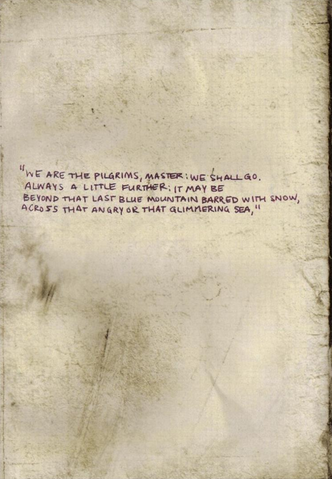 "WE ARE THE PILGRIMS, MASTER: WE SHALL GO.
ALWAYS A LITTLE FURTHER: IT MAY BE
BEYOND THAT LAST BLUE MOUNTAIN BARRED WITH SNOW,
ACROSS THAT ANGRY OR THAT GLIMMERING SEA,"